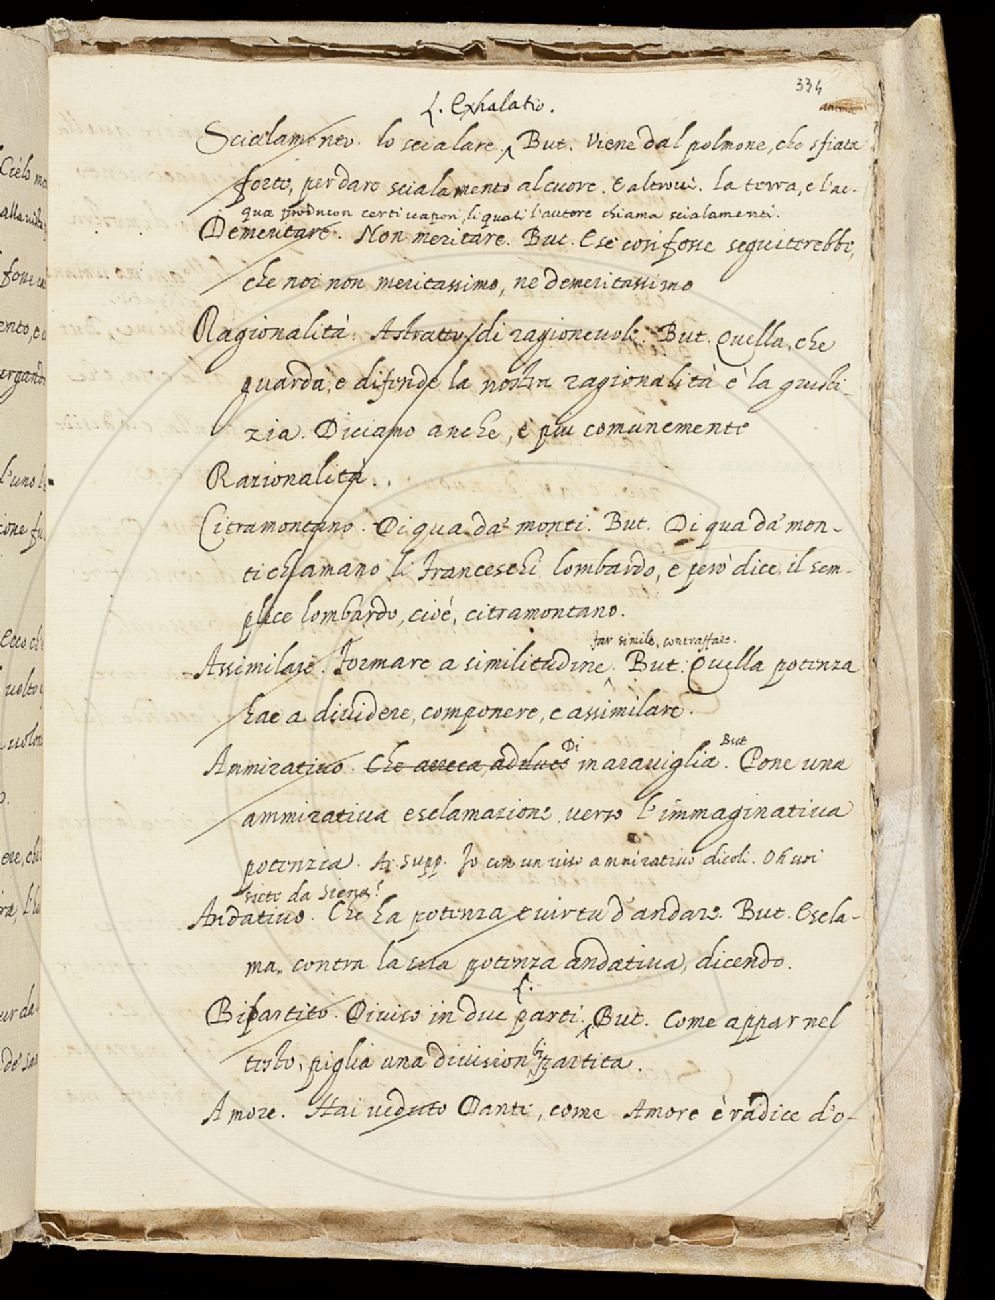 334
anima
L. Exhalatio.
Scialamento. lo scialare. But. Viene dal polmone, che sfiata
forte, per dare scialamento al cuore. E altrove. la terra, e l'ac-
qua producon certi vapori, li quali l'autore chiama scialamenti.
Demeritare. Non meritare. But. E se così fosse seguiterebbe,
che noi non meritassimo, ne demeritassimo
Ragionalità. Astratto di ragionevole. But. Quella, che
guarda, e difende la nostra ragionalità è la giusti-
zia. Diciamo anche, e piu comunemente
Razionalità.
Citramontano. Di qua da' monti. But. Di qua da' mon-
ti chiamano li Franceschi lombardo, e però dice, il sem-
plice lombardo, cioè, citramontano.
far simile, contraffare.
Assimilare. Formare a similitudine. But. Quella potenza
hae a dividere, componere, e assimilare.
Di But
Ammirativo. Che arreca, adduce maraviglia. Pone una
ammirativa esclamazione verso l'immaginativa
potenzia. Ar. Supp. Io con un viso ammirativo dicoli. Oh voi
siete da Siena?
Andativo. Che ha potenza e virtù d'andare. But. Escla-
ma contra la sua potenza andativa, dicendo.
L.
Bipartito. Diviso in due parti. But. Come appar nel
testo, piglia una division bipartita.
Amore. Hai veduto Dante, come Amore è radice d'o-
Cielo
alla
fosse
ento, e
urgando
l'uno
ione
Ecco ch
volto
ur da